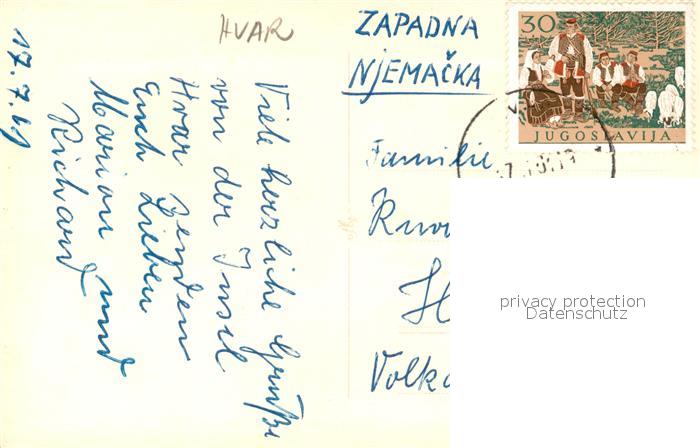 HVAR
17.7.61
Viele herzliche Grüße
von der Insel
Hvar senden
Euch Lieben
Marion und
Richard
ZAPADNA
NJEMAČKA
30
JUGOSLAVIJA
Familie
privacy protection
Datenschutz